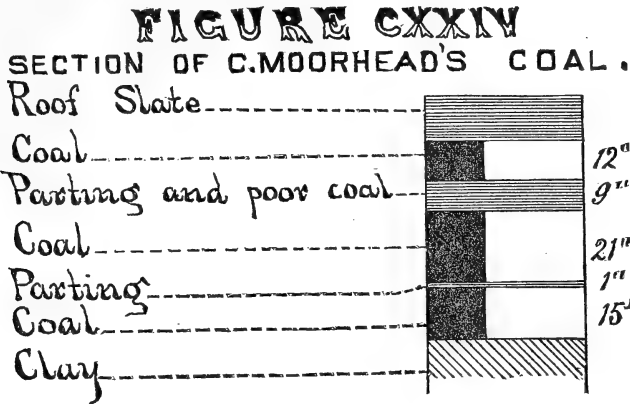 FIGURE CXXIV
SECTION OF C. MOORHEAD'S COAL.
Roof Slate
Coal 12"
Parting and poor coal 9"
Coal 21"
Parting 1"
Coal 15"
Clay